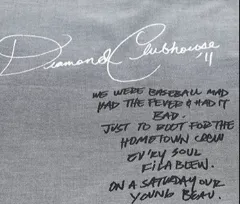 Diamond Clubhouse '11
WE WERE BASEBALL MAD
HAD THE FEVER & HAD IT
BAD.
JUST TO ROOT FOR THE
HOMETOWN CREW
EV'RY SOUL
BLEW.
ON A SATURDAY OUR
YOUNG BEAU.